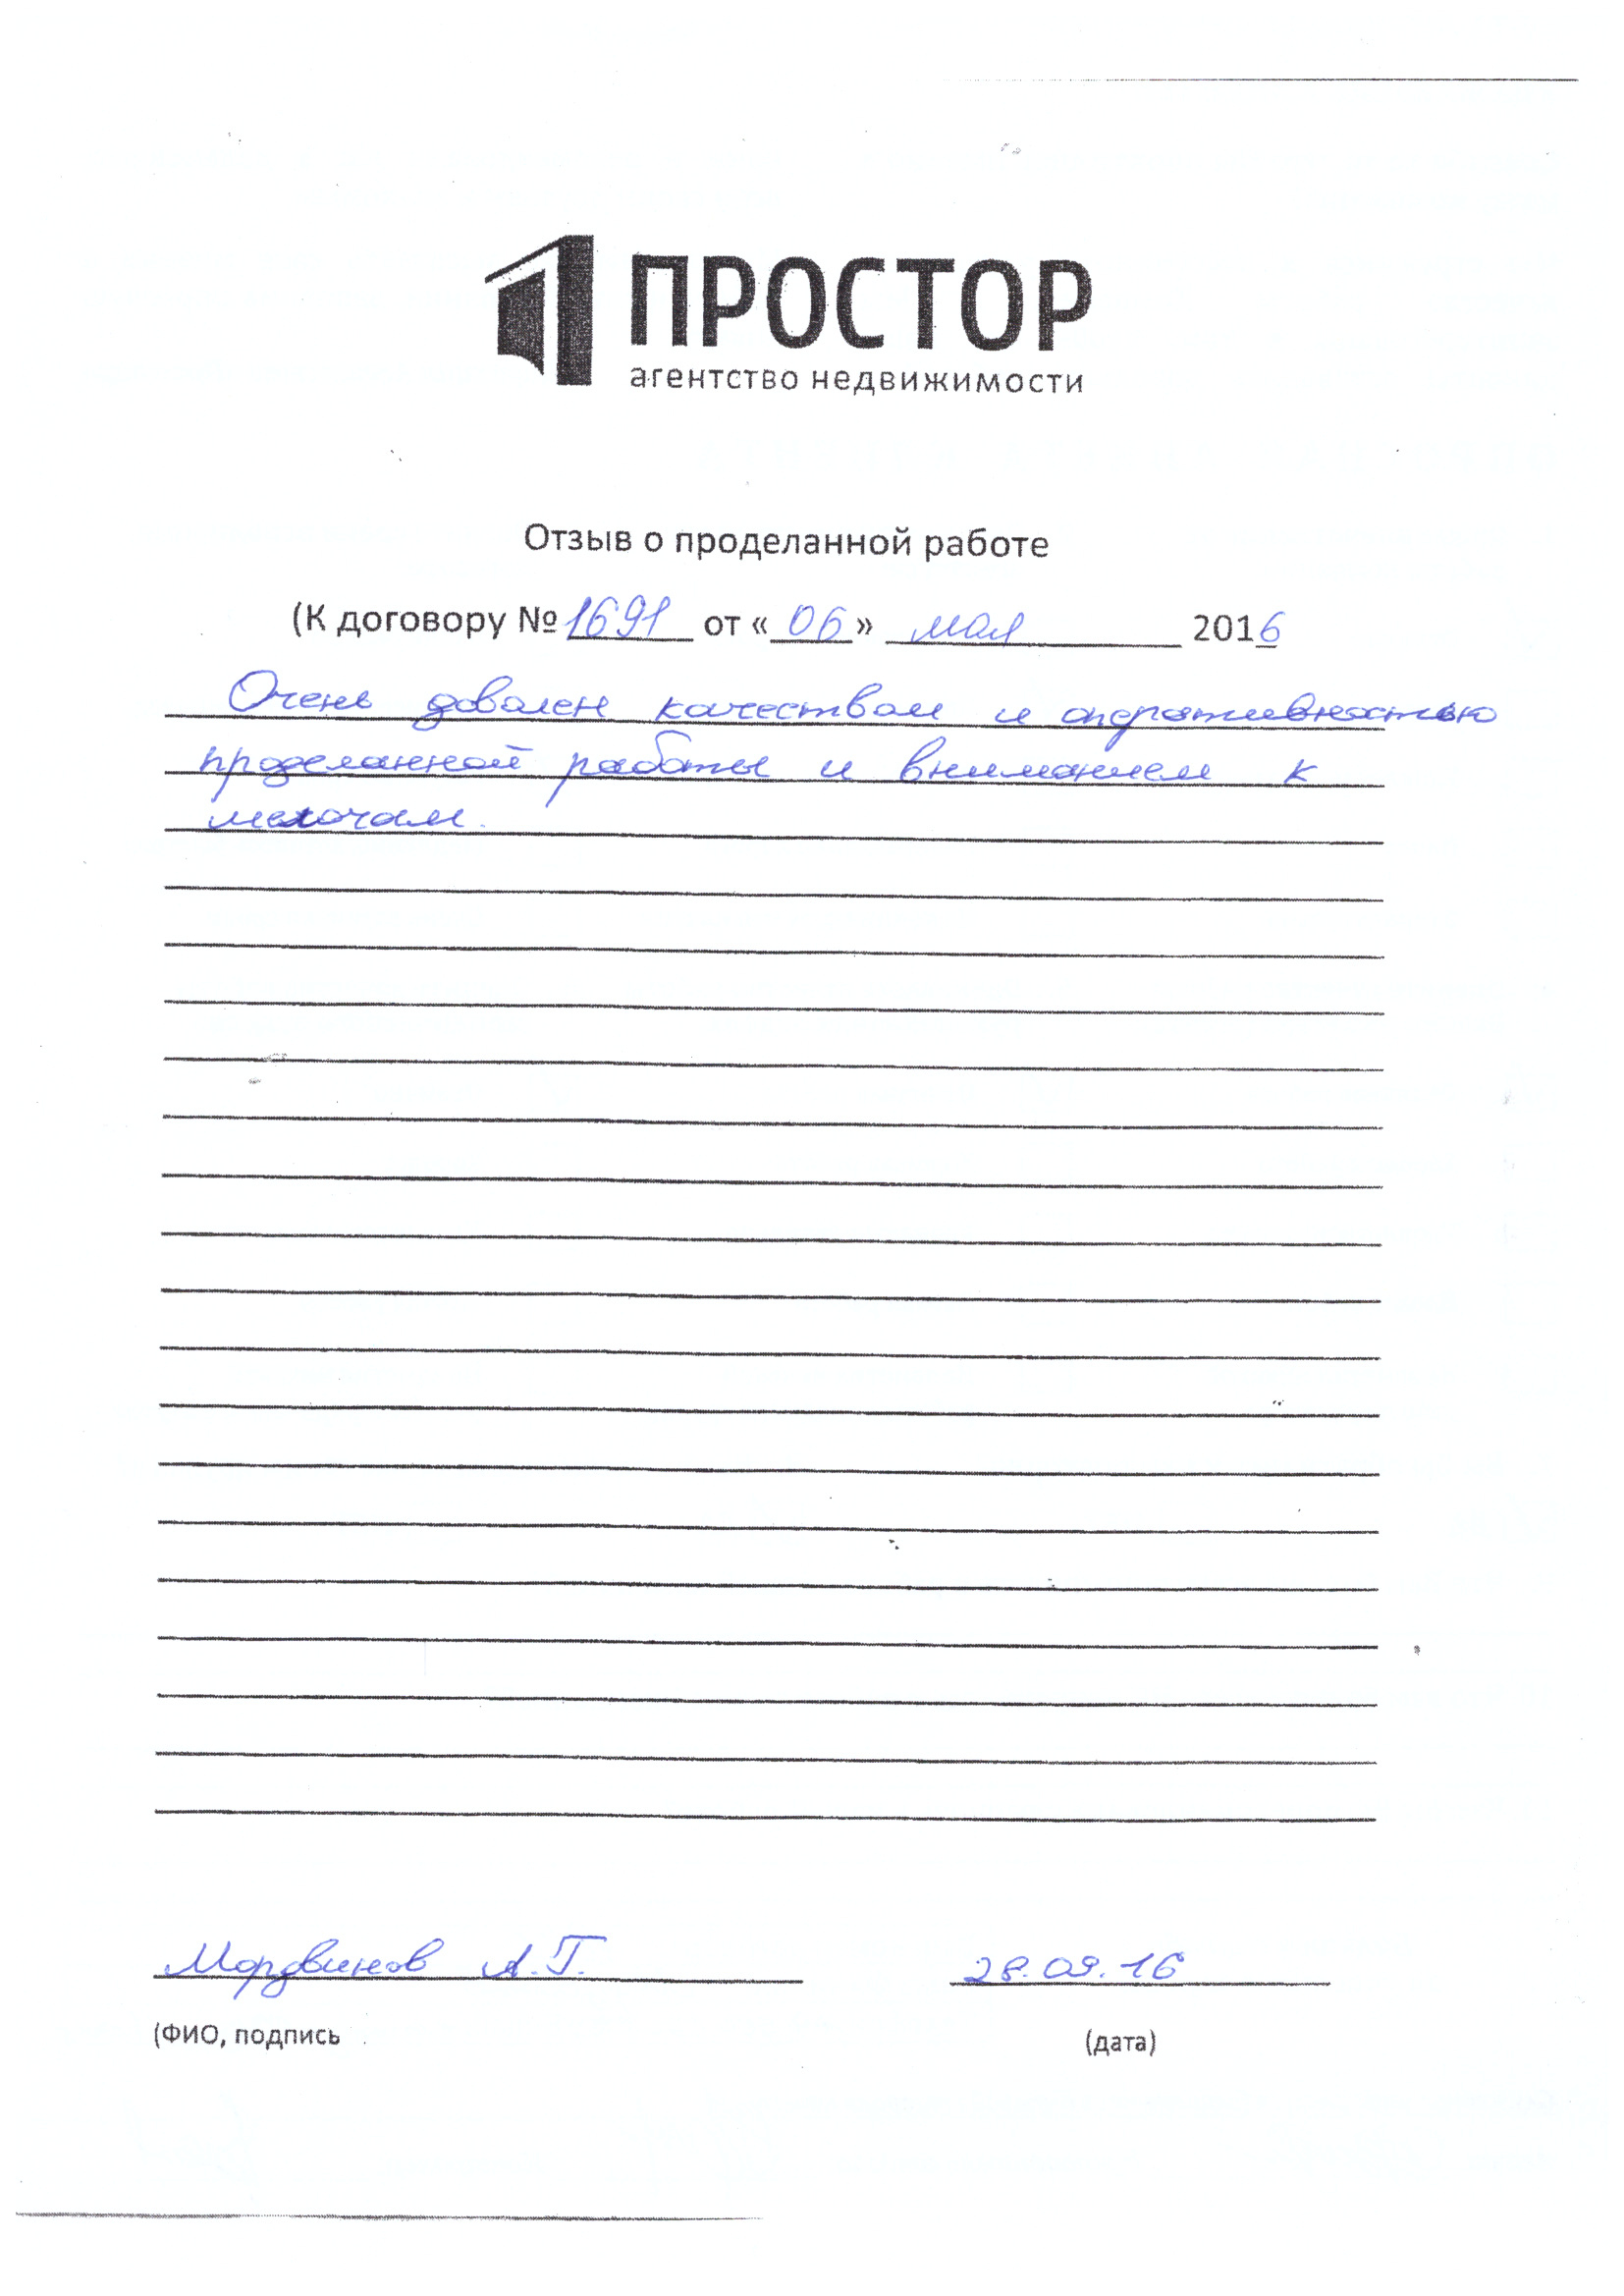 ПРОСТОР
агентство недвижимости
Отзыв о проделанной работе
(К договору № 1691 от «06» мая 2016
Очень доволен качеством и оперативностью
проделанной работы и вниманием к
мелочам.
Мордвинов А.Г. 28.09.16
(ФИО, подпись (дата)